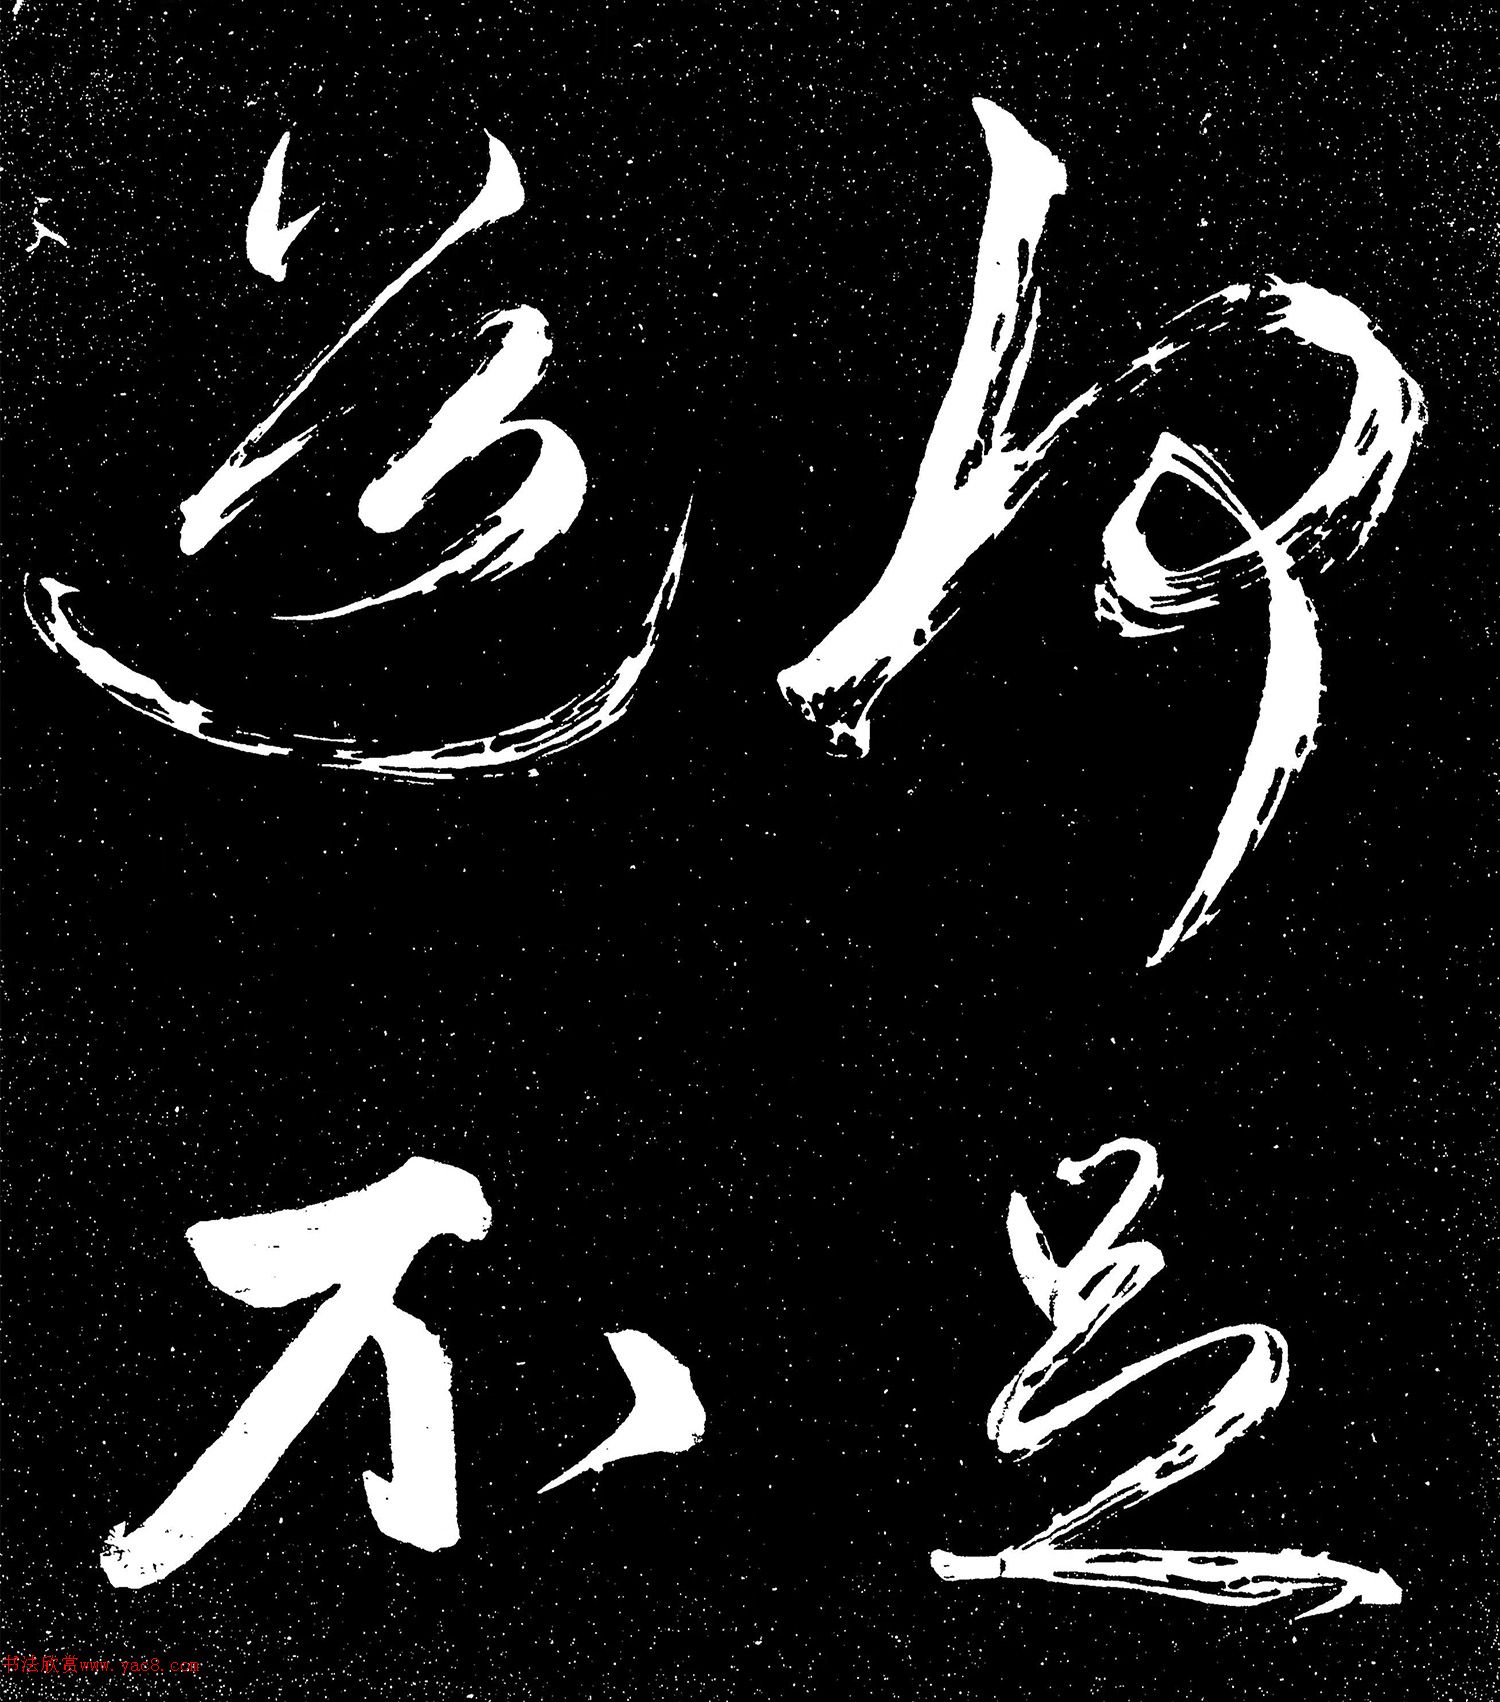 何足
道不
书法欣赏www.yac8.com